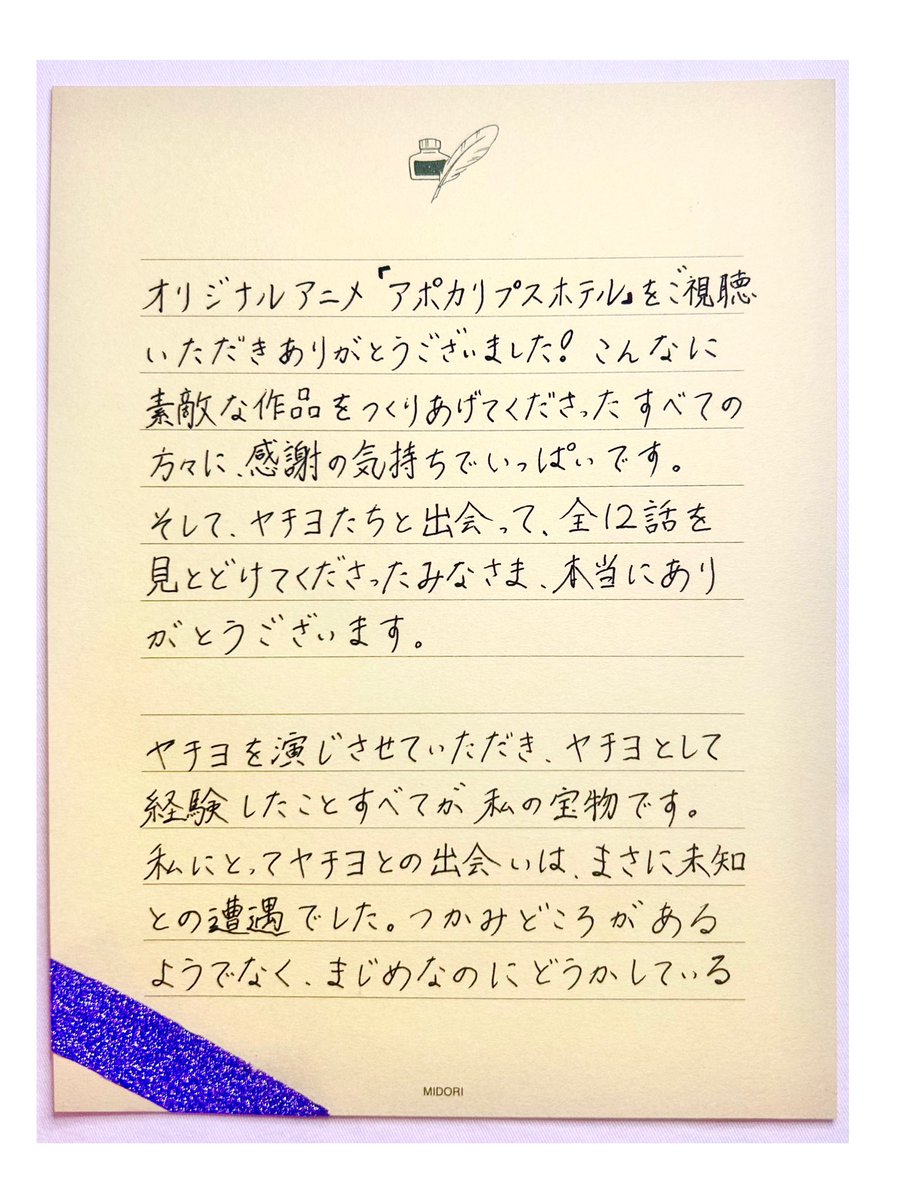 オリジナルアニメ「アポカリプスホテル」をご視聴
いただきありがとうございました! こんなに
素敵な作品をつくりあげてくださったすべての
方々に、感謝の気持ちでいっぱいです。
そして、ヤチヨたちと出会って、全12話を
見とどけてくださったみなさま、本当にあり
がとうございます。
ヤチヨを演じさせていただき、ヤチヨとして
経験したことすべてが私の宝物です。
私にとってヤチヨとの出会いは、まさに未知
との遭遇でした。つかみどころがある
ようでなく、まじめなのにどうかしている
MIDORI